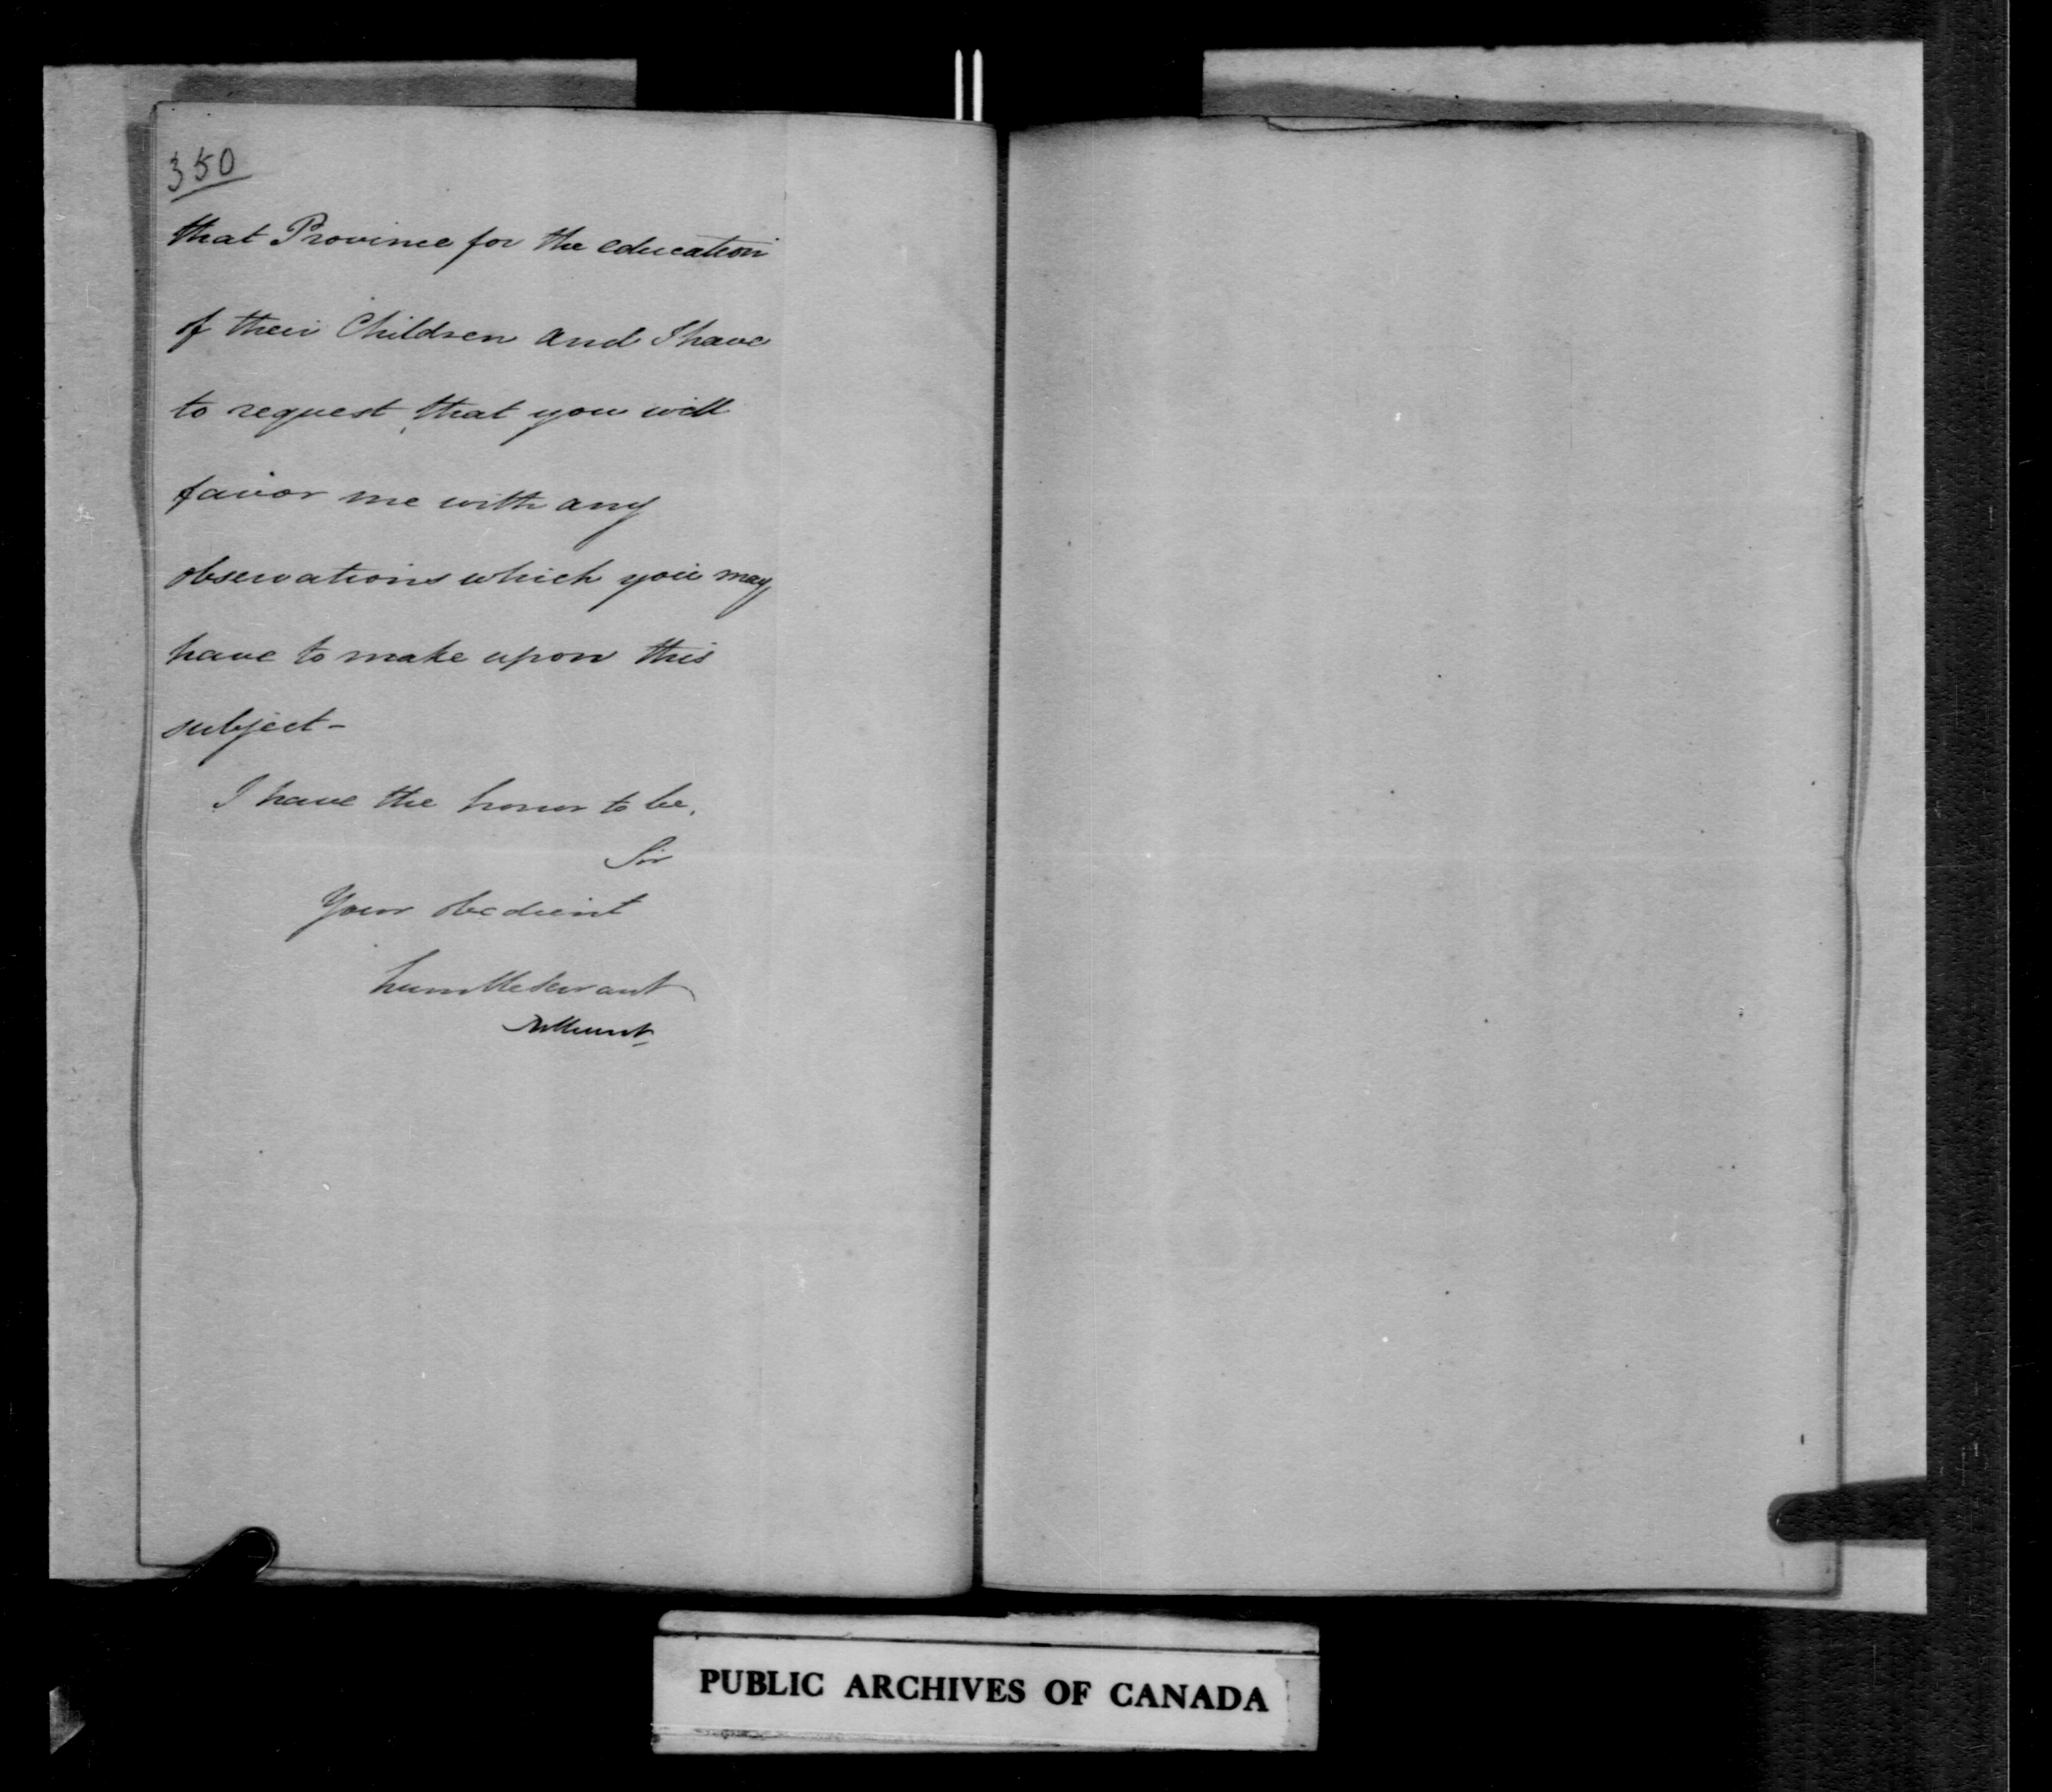 350
that Province for the education
of their Children and I have
to request, that you will
favor me with any
observations which you may
have to make upon this
subject-
I have the honor to be,
Sir
Your obedient
humble servant
Bathurst
PUBLIC ARCHIVES OF CANADA